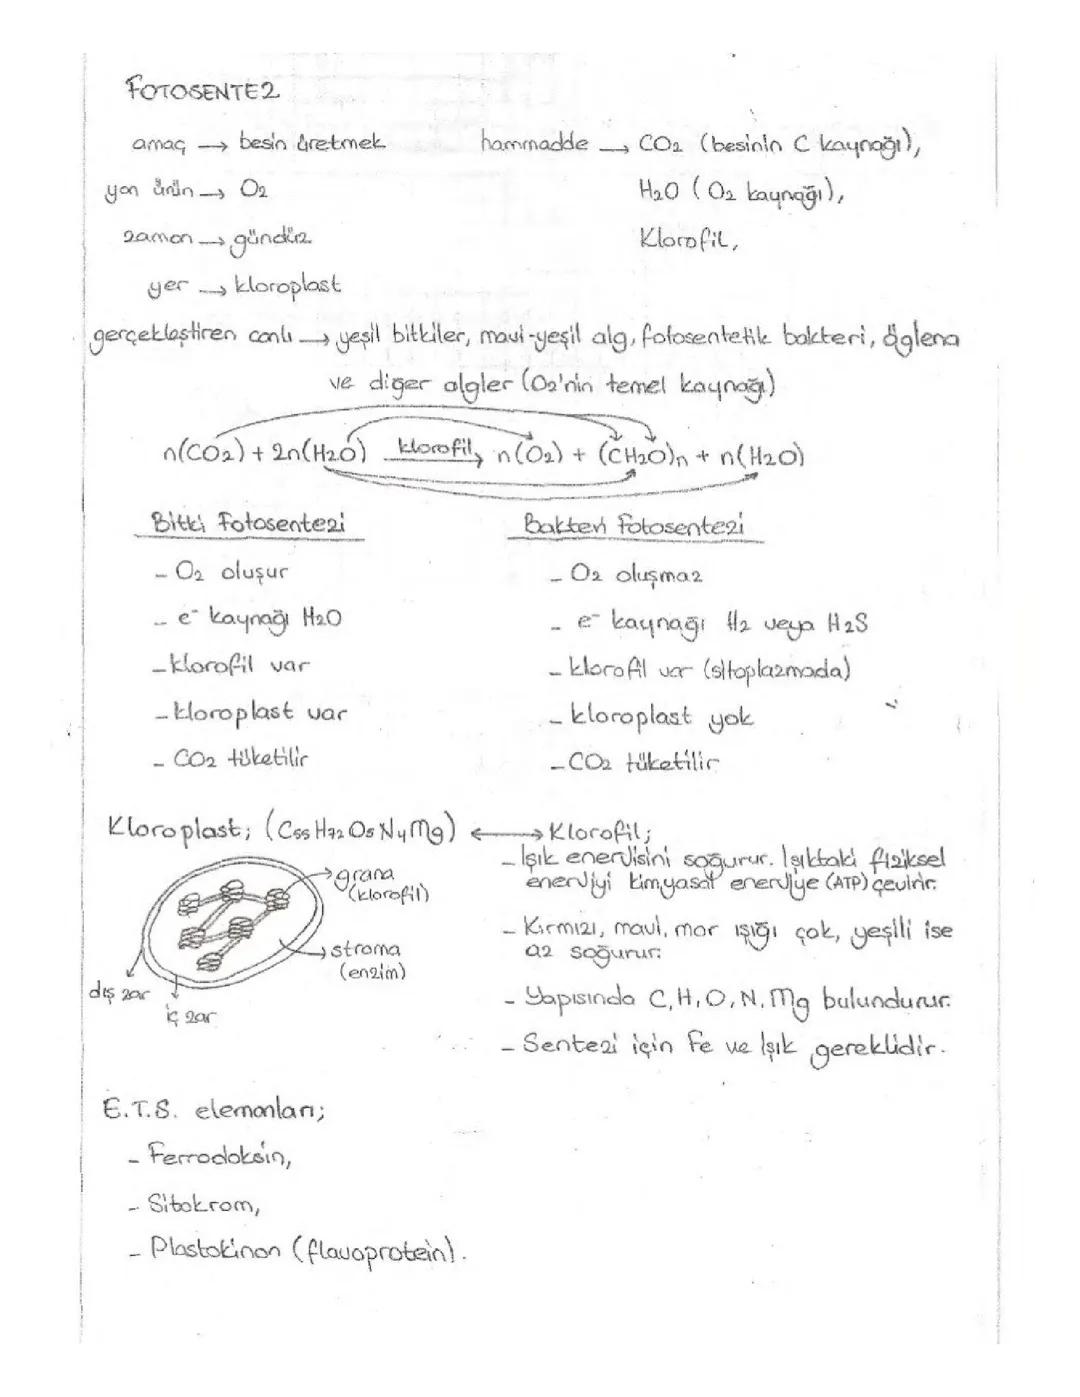 FOTOSENTEZ
amaç → besin üretmek
yan ürün → O₂
zaman → gündüz
yer → kloroplast
hammadde → CO₂ (besinin C kaynağı),
H₂O (O₂ kaynağı),
Klorofil,
gerçekleştiren canlı → yeşil bitkiler, mavi-yeşil alg, fotosentetik bakteri, öglena
ve diğer algler (O₂'nin temel kaynağı)
n(CO₂) + 2n(H₂O) klorofil → n(O₂) + (CH₂O)n + n(H₂O)
Bitki Fotosentezi
- O₂ oluşur
- e⁻ kaynağı H₂O
- klorofil var
- kloroplast var
- CO₂ tüketilir
Bakteri Fotosentezi
- O₂ oluşmaz
- e⁻ kaynağı H₂ veya H₂S
- klorofil var (sitoplazmada)
- kloroplast yok
- CO₂ tüketilir
Kloroplast; (C₅₅H₇₂O₅N₄Mg) ↔ Klorofil;
grana
(klorofil)
stroma
(enzim)
dış zar
iç zar
- Işık enerjisini soğurur. Işıktaki fiziksel
enerjiyi kimyasal enerjiye (ATP) çevirir.
- Kırmızı, mavi, mor ışığı çok, yeşili ise
az soğurur.
- Yapısında C, H, O, N, Mg bulundurur.
- Sentezi için Fe ve Işık gereklidir.
E.T.S. elemanları;
- Ferrodoksin,
- Sitokrom,
- Plastokinon (flavoprotein).